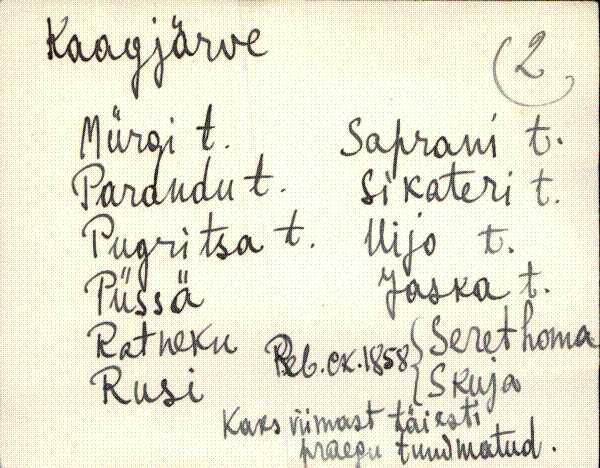 Kaagjärve
2
Mürgi t.
Parandu t.
Pugritsa t.
Püssä
Ratneku
Rusi
Saprani t.
Sikateri t.
Uijo t.
Jaska t.
Reb. ex. 1858 { Serethoma
Skuja
Kaks viimast täiesti
praegu tundmatud.